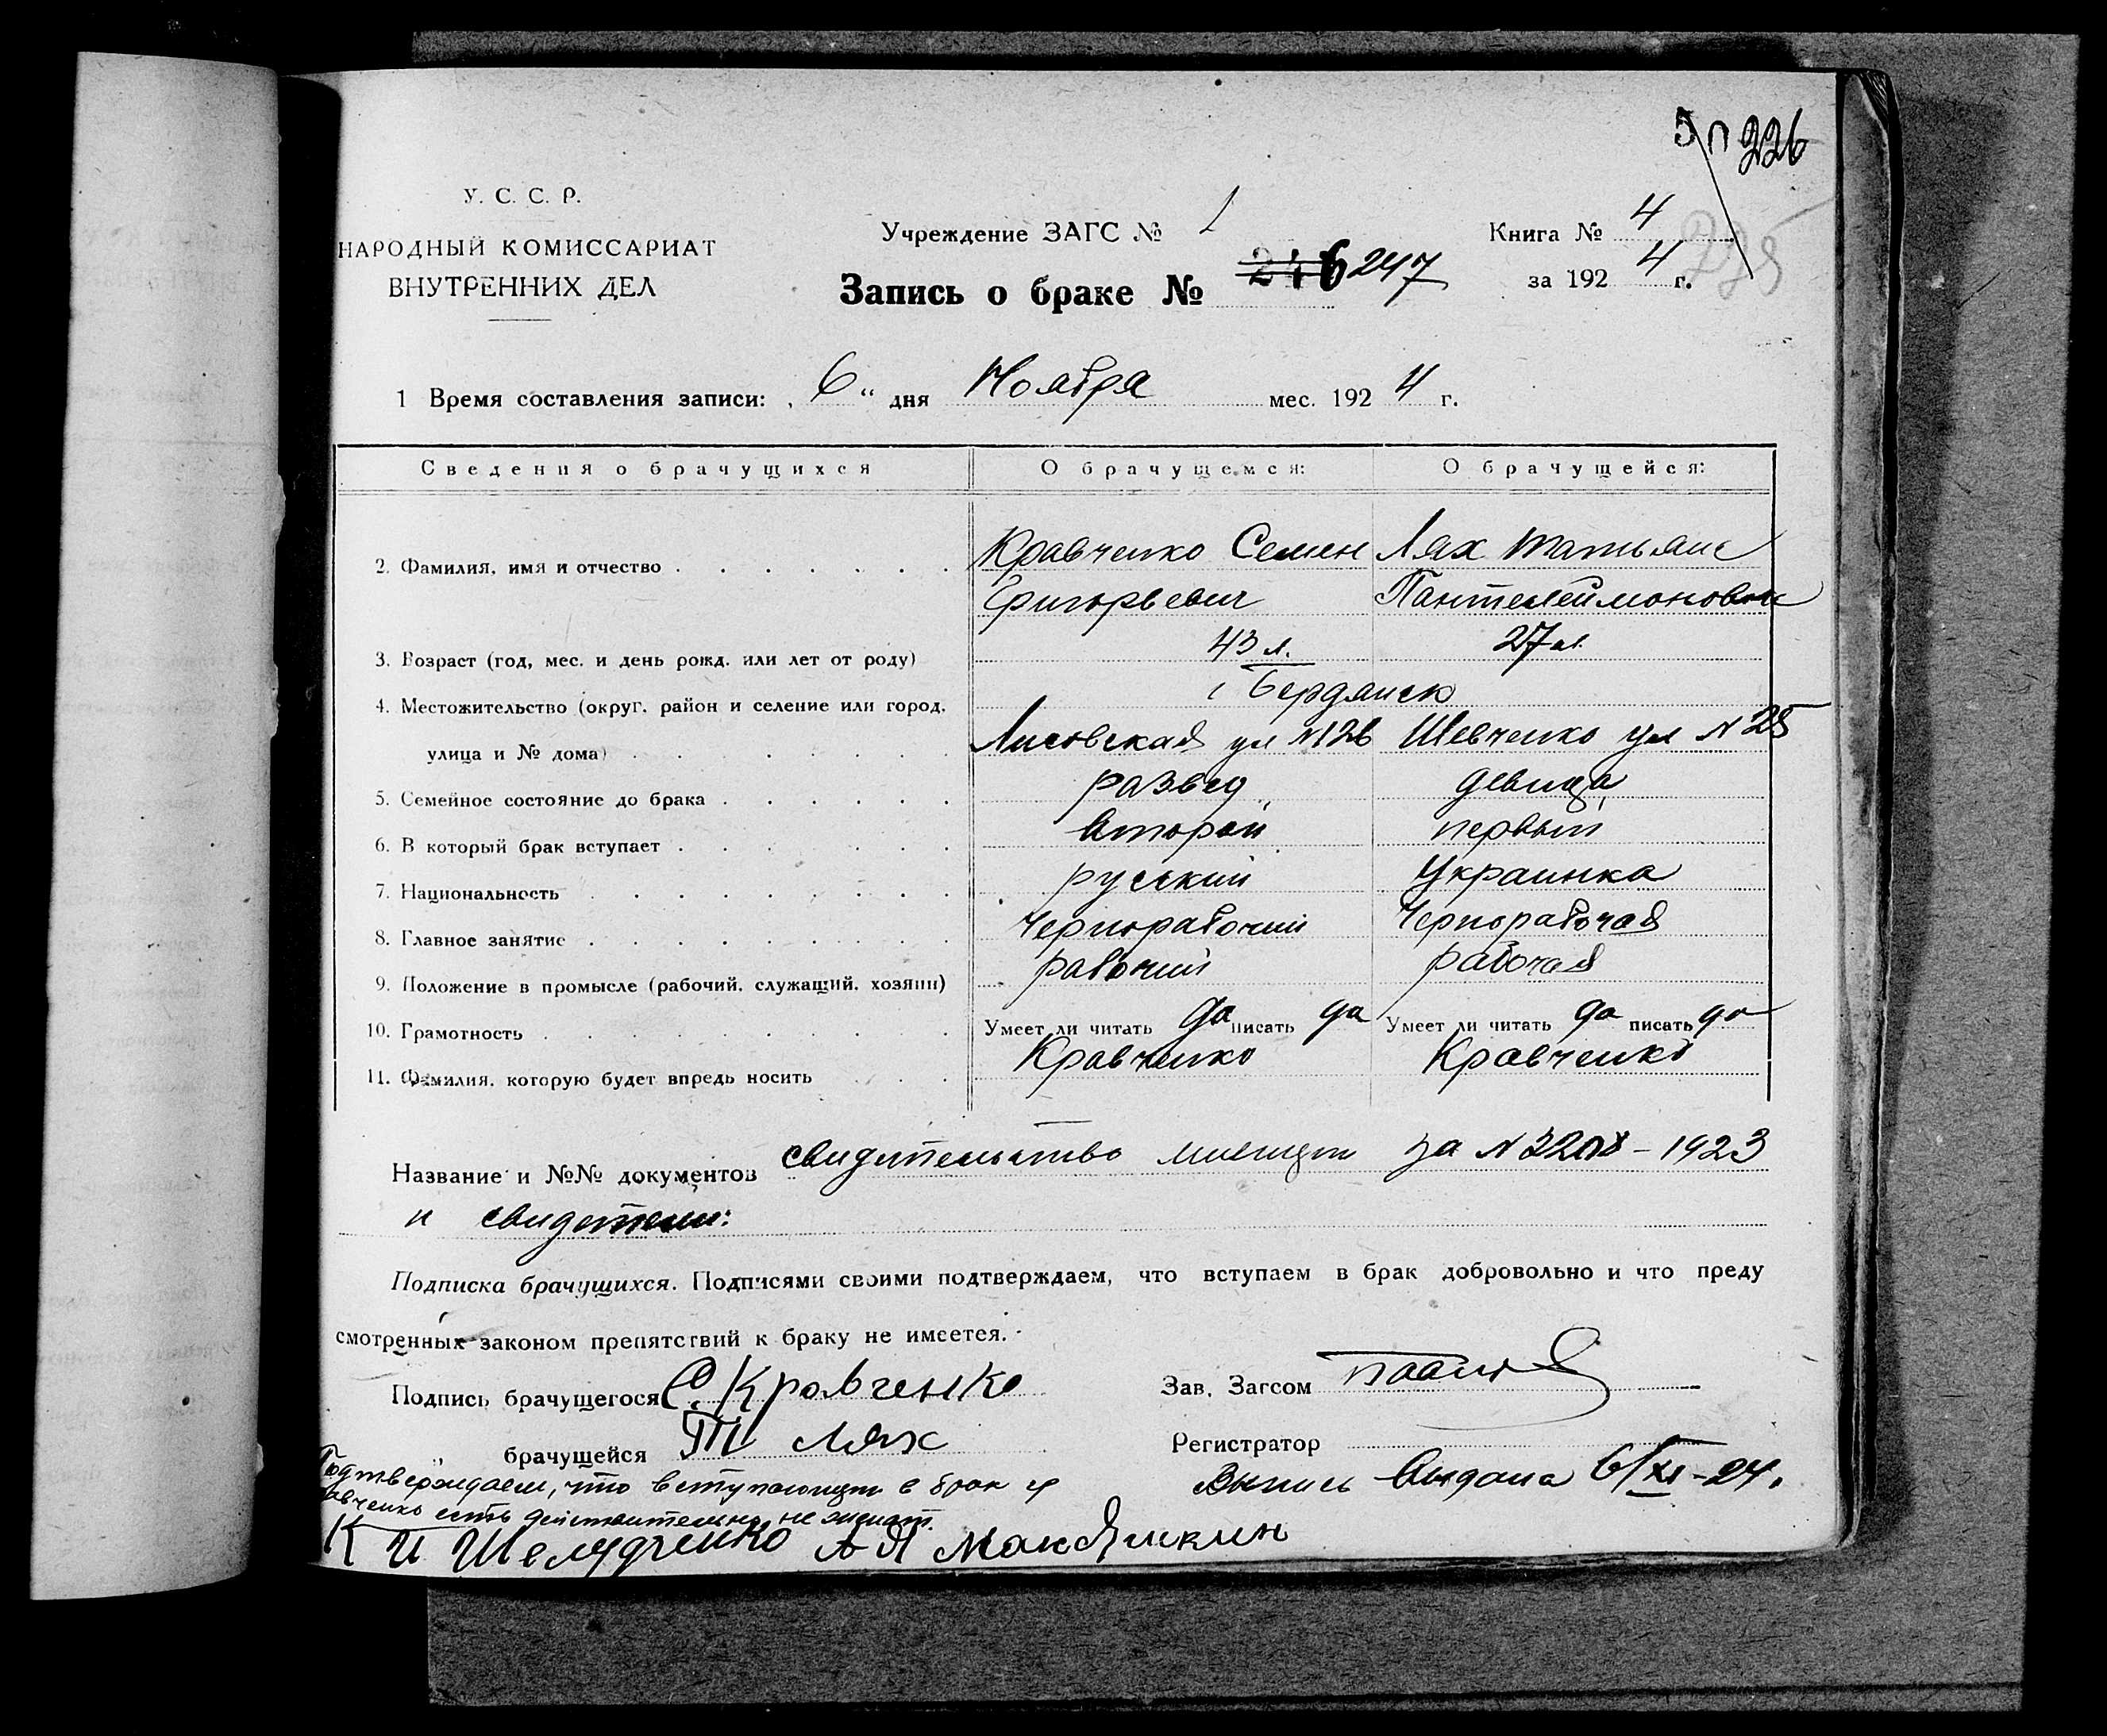 226
У. С. С. Р.
НАРОДНЫЙ КОМИССАРИАТ
ВНУТРЕННИХ ДЕЛ
Учреждение ЗАГС № 1
Книга № 4
Запись о браке № 246 247
за 192 4 г.
225
1 Время составления записи: „ 6 “ дня Ноября мес. 192 4 г.
Сведения о брачущихся О брачущемся: О брачущейся:
2. Фамилия, имя и отчество Кравченко Семен Лях Татьяне
Григорьевич Пантелеймоновне
3. Возраст (год, мес. и день рожд. или лет от роду) 43 л. 27 л.
4. Местожительство (округ, район и селение или город, г Бердянск
улица и № дома) Лисовская ул №126 Шевченко ул №25
5. Семейное состояние до брака развед девица
6. В который брак вступает второй первый
7. Национальность русский Украинка
8. Главное занятие Чернорабочий Чернорабочая
9. Положение в промысле (рабочий, служащий, хозяин) рабочий рабочая
10. Грамотность Умеет ли читать да писать да Умеет ли читать да писать да
11. Фамилия, которую будет впредь носить Кравченко Кравченко
Название и №№ документов свидетельство за № – 1923
и свидетели:
Подписка брачущихся. Подписями своими подтверждаем, что вступаем в брак добровольно и что преду
смотренных законом препятствий к браку не имеется.
Подпись брачущегося С. Кравченко Зав. Загсом
„ брачущейся Т Лях Регистратор
Подтверждаем, что вступающие в брак гр
Выпись выдана 6/XI–24.
авченко есть действительно не женат.
К И Шелудченко А Я